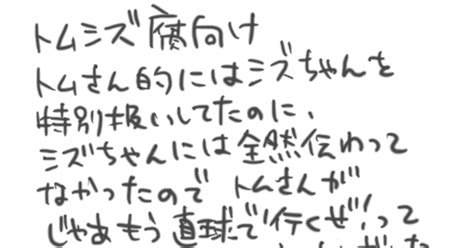 トムシズ腐向け
トムさん的にはシズちゃんを
特別扱いしてたのに、
シズちゃんには全然伝わって
なかったので トムさんが
じゃあもう直球で行くぜ!って